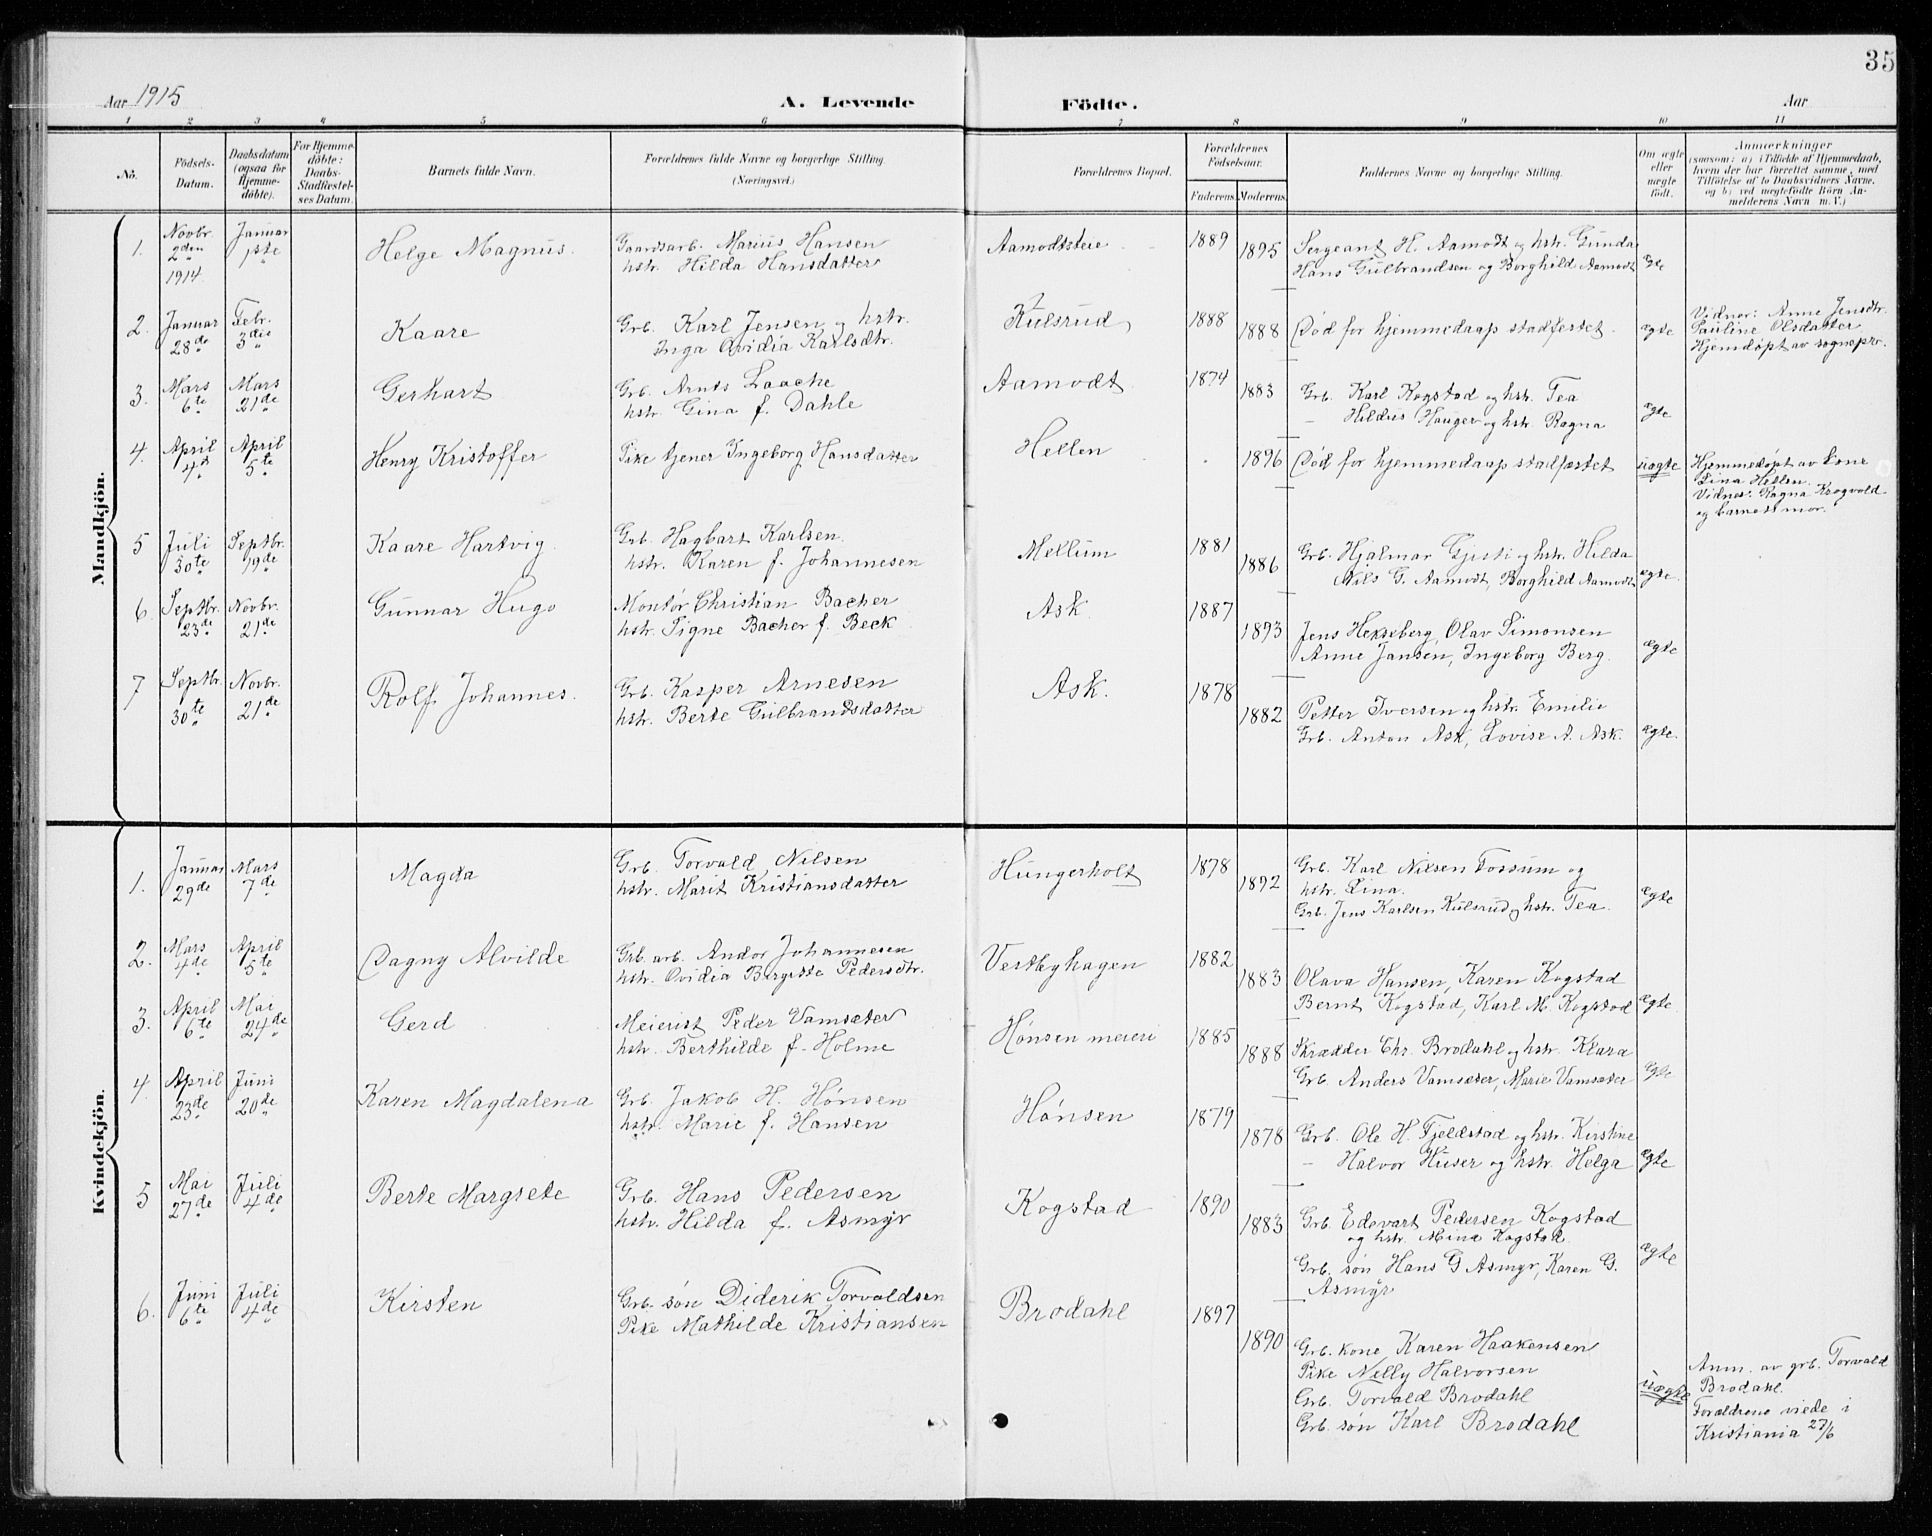 35
Aar 1915
A. Levende Födte.
Aar
1 2 3 4 5 6 7 8 9 10 11
No.
Födsels-
Datum.
Daabsdatum
(ogsaa for
Hjemme-
döbte).
For Hjemme-
döbte:
Daabs-
Stadfæstel-
ses Datum.
Barnets fulde Navn.
Forældrenes fulde Navne og borgerlige Stilling.
(Næringsvei.)
Forældrenes Bopæl.
Forældrenes
Födselsaar.
Faderens. Moderens.
Faddernes Navne og borgerlige Stilling.
Om ægte
eller
uægte
födt.
Anmærkninger
(saasom: a) i Tilfælde af Hjemmedaab,
hvem der har forrettet samme, med
Tilföielse af to Daabsvidners Navne,
og b) ved uægtefödte Börn An-
melderens Navn m. V.)
Mandkjön.
1. Novbr. 2den 1914. Januar 1ste Helge Magnus.
Gaardsarb. Marius Hansen
hstr. Hilda Hansdatter
Aamodtsteie 1889 1895
Sergeant H. Aamodt og hstr. Gunda
Hans Gulbrandsen og Borghild Aamodt ægte
2. Januar 28de Febr. 3die Kaare
Grb. Karl Jensen og hstr.
Inga Ovidia Karlsdtr.
Kulsrud 1888 1888
Død før hjemmedaap stadfestet. ægte
Vidner: Anne Jensdtr.
Pauline Olsdatter
Hjemdøpt av sognepr.
3. Mars 6te Mars 21de Gerhart
Grb. Arnts Laache
hstr. Gina f. Dahle
Aamodt 1874 1883
Grb. Karl Kogstad og hstr. Tea
– Hildus Hauger og hstr. Ragna ægte
4. April 4de April 5te Henry Kristoffer
Pike Gjener Ingeborg Hansdatter
Hellen 1896
Død før hjemmedaap stadfæstet uægte
Hjemmedøpt av kone
Lina Hellen.
Vidner: Ragna Krogvold
og barnets mor.
5 Juli 30te Septbr. 19de Kaare Hartvig.
Grb. Hagbart Karlsen.
hstr. Karen f. Johannesen
Mellum 1881 1886
Grb. Hjalmar Gjesti og hstr. Hilda
Nils G. Aamodt, Borghild Aamodt ægte.
6 Septbr. 23de Novbr. 21de Gunnar Hugo
Montør Christian Bacher
hstr. Signe Bacher f. Beck
Ask 1887 1893
Jens Hekseberg, Olav Simonsen
Anne Jansen, Ingeborg Berg. ægte
7 Septbr. 30te Novbr. 21de Rolf Johannes.
Grb. Kasper Arnesen
hstr. Berte Gulbrandsdatter
Ask. 1878 1882
Petter Iversen og hstr. Emilie
Grb. Anton Ask, Lovise A. Ask. ægte.
Kvindekjön.
1. Januar 29de Mars 7de Magda
Grb. Torvald Nilsen
hstr. Marit Kristiansdatter
Hungerholt 1878 1892
Grb. Karl Nilsen Fossum og
hstr. Lina.
Grb. Jens Karlsen Kulsrud og hstr. Tea. ægte
2. Mars 4de April 5te Dagny Alvilde
Grb. arb. Andor Johannesen
hstr. Ovidia Birgitte Pedersdtr.
Vestbyhagen 1882 1883
Olava Hansen, Karen Kogstad
Bernt Kogstad, Karl M. Kogstad ægte
3. April 6te Mai 24de Gerd
Meierist Peder Vamsæter
hstr. Berthilde f. Holme
Hønsen meieri 1885 1888
Skrædder Chr. Brodahl og hstr. Klara
Grb. Anders Vamsæter, Marie Vamsæter ægte
4. April 23de Juni 20de Karen Magdalena
Grb. Jakob H. Hønsen
hstr. Marie f. Hansen
Hønsen 1879 1878
Grb. Ole H. Fjeldstad og hstr. Kirstine
– Halvor Huser og hstr. Helga ægte
5 Mai 27de Juli 4de Berte Margrete
Grb. Hans Pedersen
hstr. Hilda f. Asmyr
Kogstad 1890 1883
Grb. Edevart Pedersen Kogstad
og hstr. Mina Kogstad.
Grb. søn Hans G Asmyr, Karen G.
Asmyr ægte
6. Juni 6te Juli 4de Kirsten
Grb. søn Diderik Torvaldsen
Pike Mathilde Kristiansen
Brodahl 1897 1890
Grb. kone Karen Haakensen
Pike Nelly Halvorsen
Grb. Torvald Brodahl
Grb. søn Karl Brodahl uægte
Anm. av grb. Torvald
Brodahl.
Forældrene viede i
Kristiania 27/6